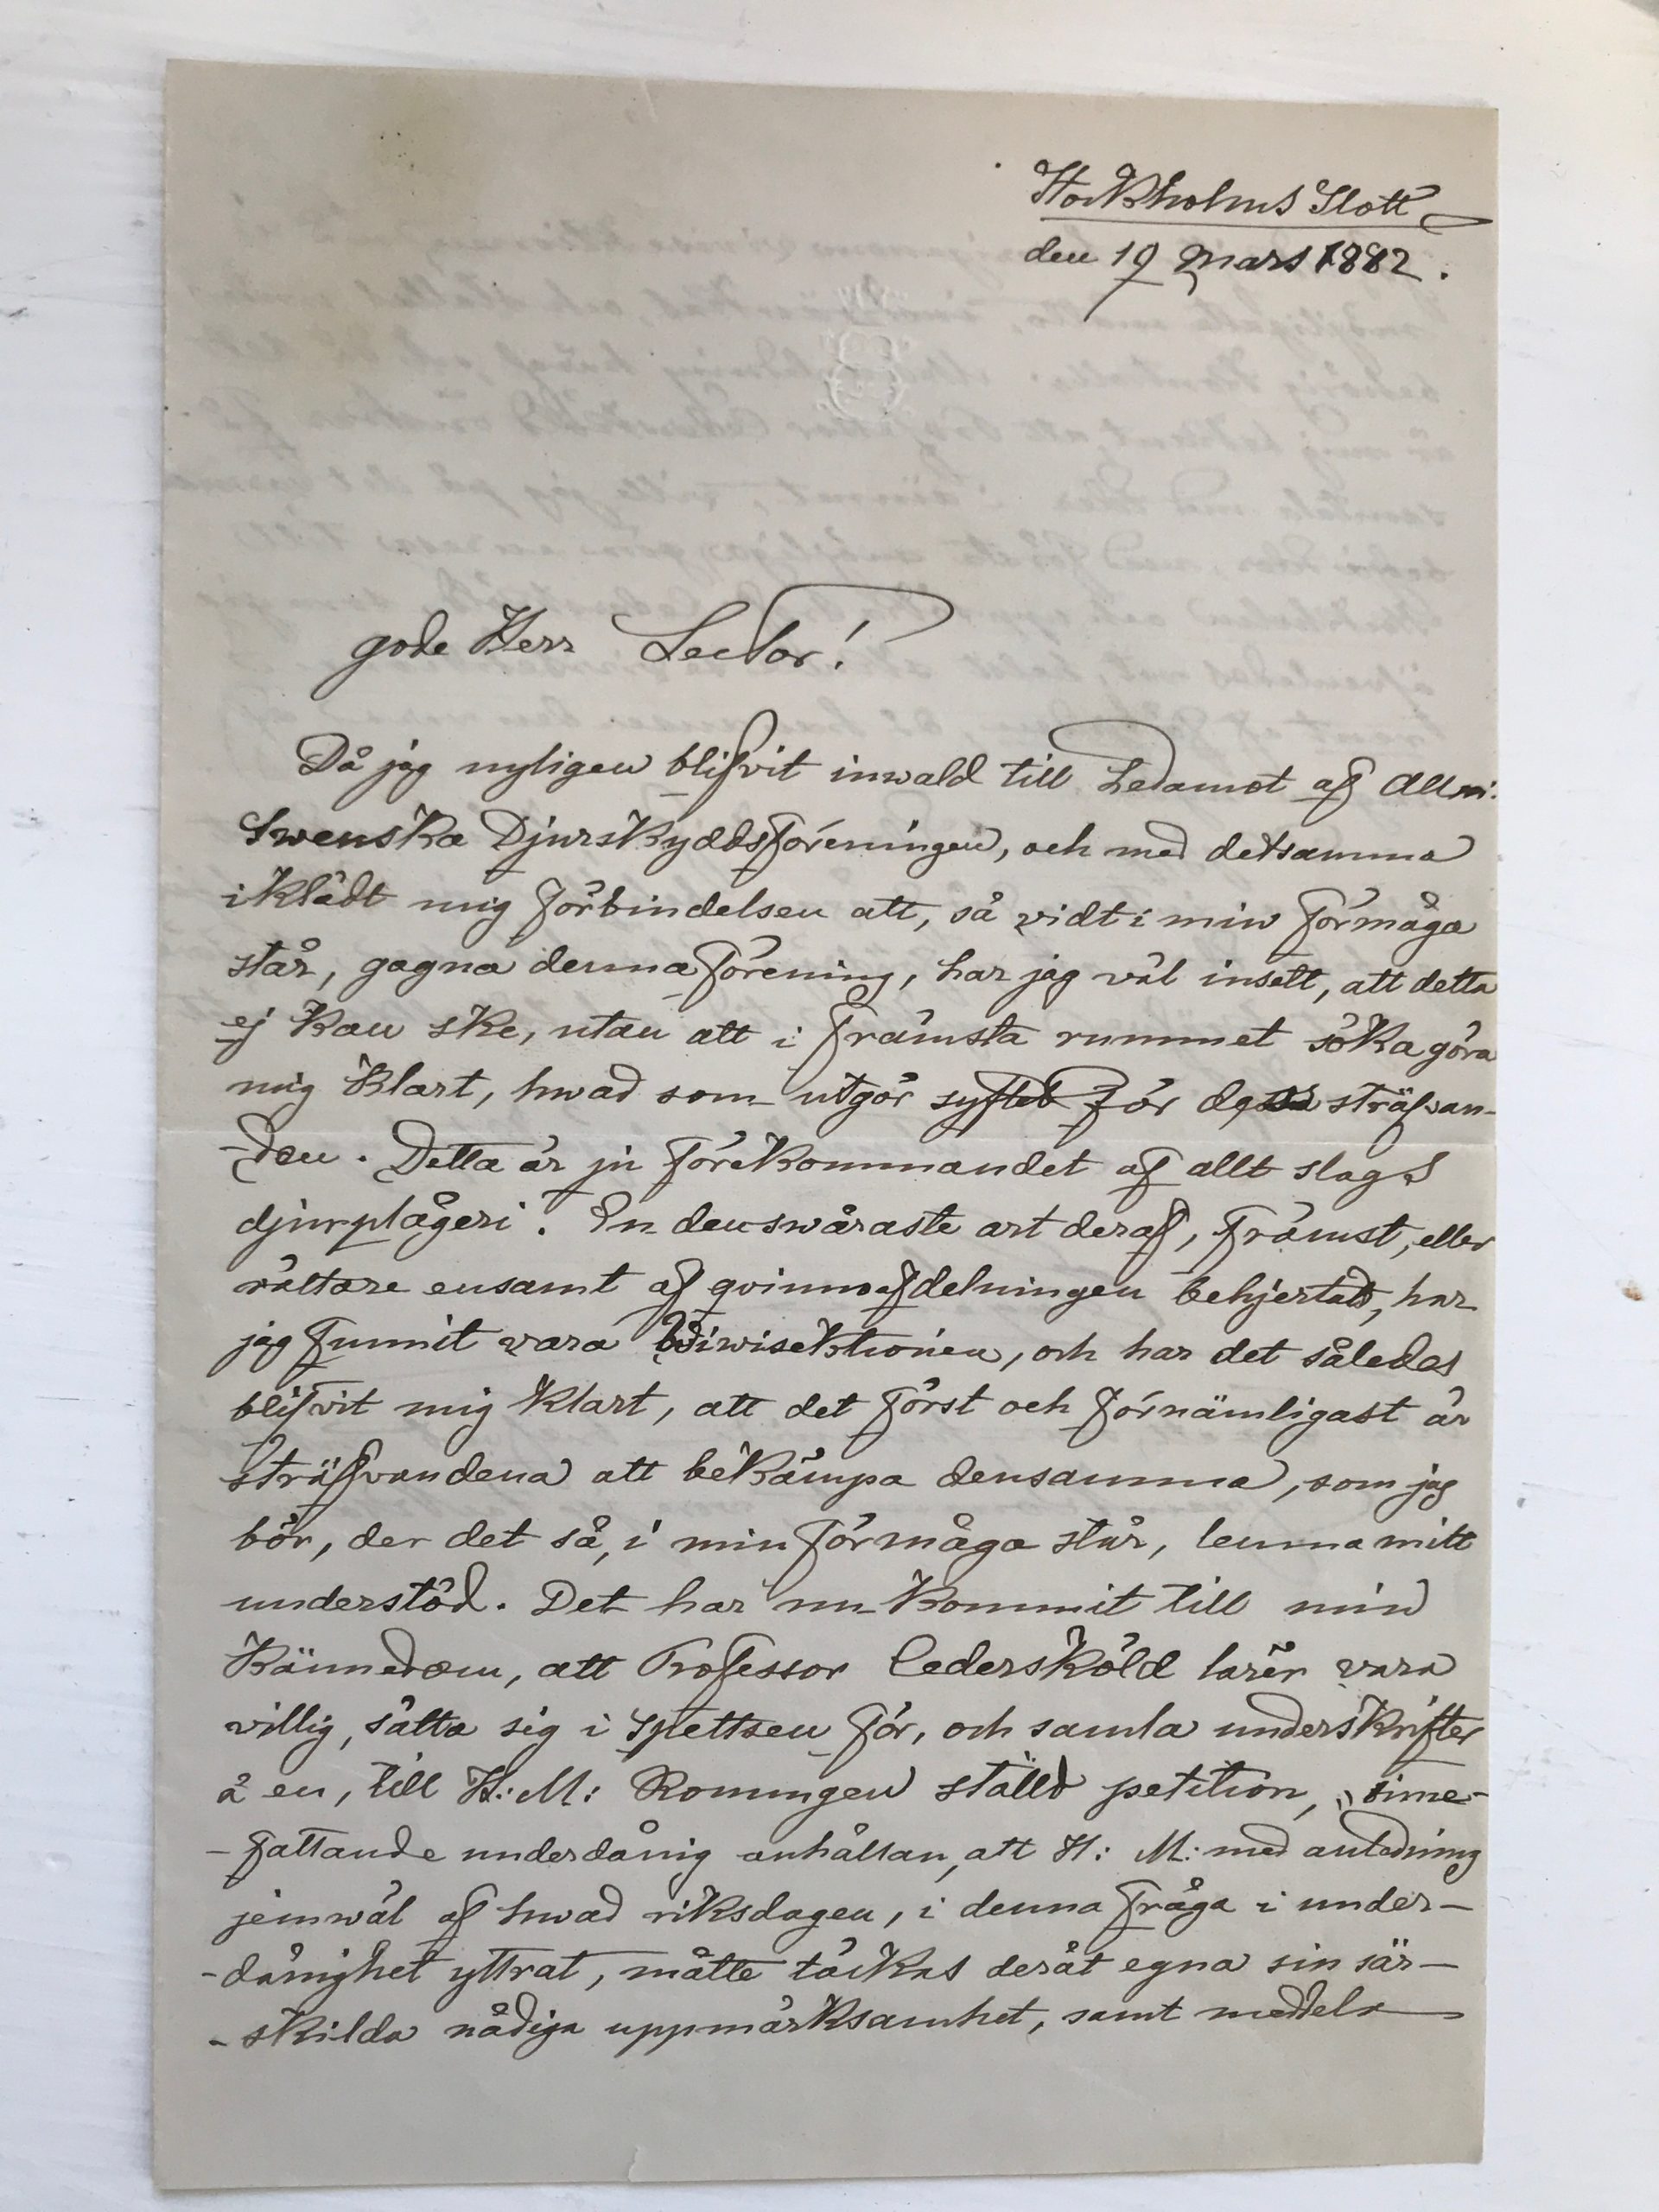 Stockholms Slott
den 19 Mars 1882.
gode Herr Lector!
Då jag nyligen blifvit inwald till Ledamot af Allm:
Swenska Djurskyddsföreningen, och med detsamma
iklädt mig förbindelsen att, så vidt i min förmåga
står, gagna denna förening, har jag väl insett, att detta
ej kan ske, utan att i främsta rummet söka göra
mig klart, hwad som utgör syftet för dess sträfvan-
-den. Detta är ju förekommandet af allt slags
djurplågeri. En den swåraste art deraf, främst, eller
rättare ensamt af qvinnoafdelningen behjertats, har
jag funnit vara wiwisektionen, och har det således
blifvit mig klart, att det först och förnämligast är
sträfvandena att bekämpa densamma, som jag
bör, der det så, i min förmåga står, lemna mitt
understöd. Det har nu kommit till min
kännedom, att Professor Cedersköld lärer vara
villig, sätta sig i spettsen för, och samla underskrifter
å en, till H: M: Konungen ställd petition,
-fattande underdånig anhållan, att H: M: med anledning
jemwäl af hwad riksdagen, i denna fråga i under-
-dånighet yttrat, måtte täckas deråt egna sin sär-
-skilda nådiga uppmärksamhet, samt meddela